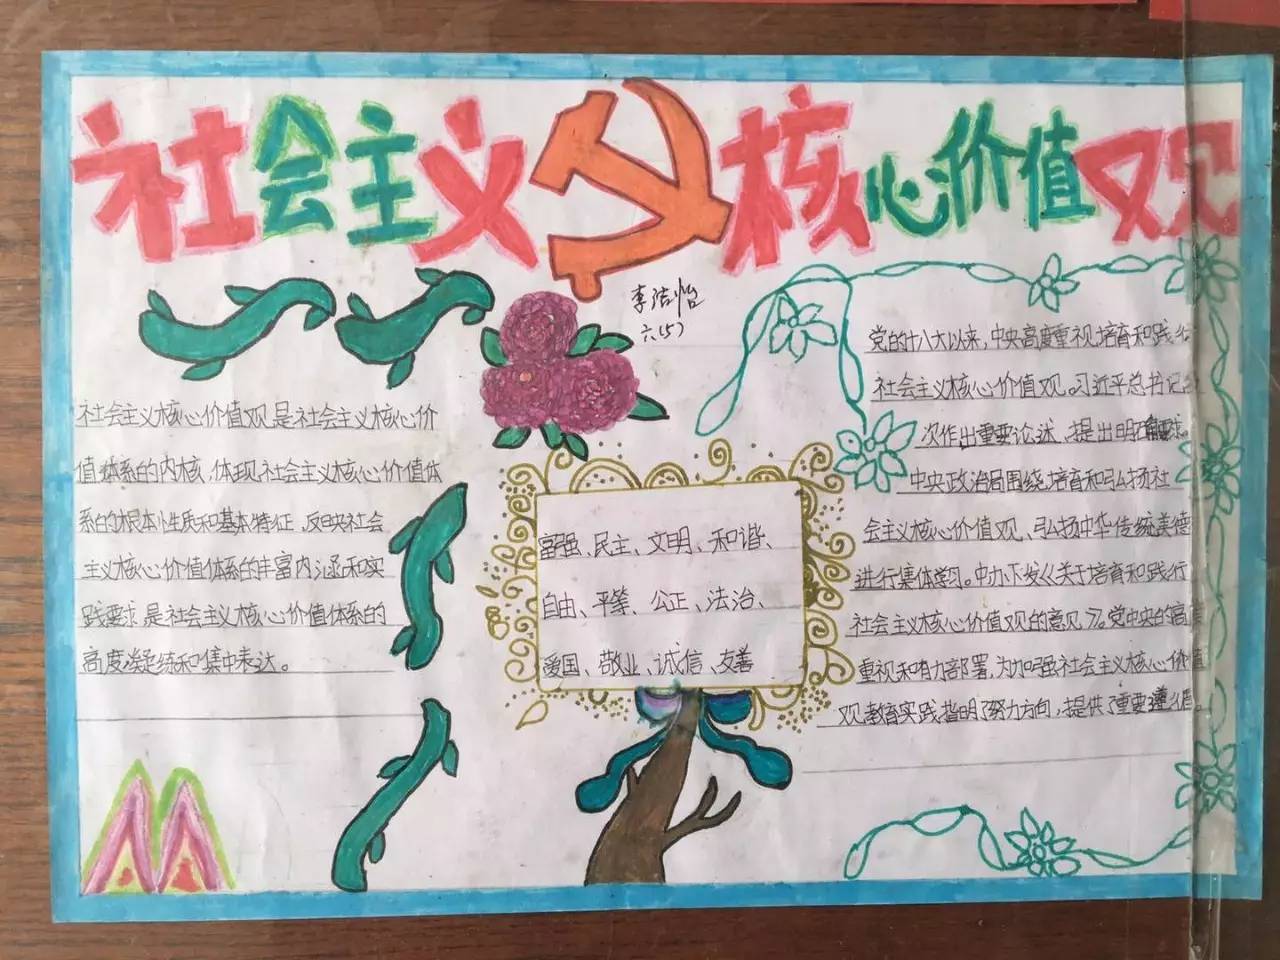 社会主义核心价值观
李洁怡
六(5)
社会主义核心价值观是社会主义核心价
值体系的内核,体现社会主义核心价值体
系的根本性质和基本特征,反映社会
主义核心价值体系的丰富内涵和实
践要求,是社会主义核心价值体系的
高度凝练和集中表达。
富强、民主、文明、和谐、
自由、平等、公正、法治、
爱国、敬业、诚信、友善
党的十八大以来,中央高度重视培育和践行
社会主义核心价值观。习近平总书记多
次作出重要论述、提出明确要求。
中央政治局围绕培育和弘扬社
会主义核心价值观、弘扬中华传统美德
进行集体学习。中办下发《关于培育和践行
社会主义核心价值观的意见》。党中央的高度
重视和有力部署,为加强社会主义核心价值
观教育实践指明了努力方向,提供了重要遵循。